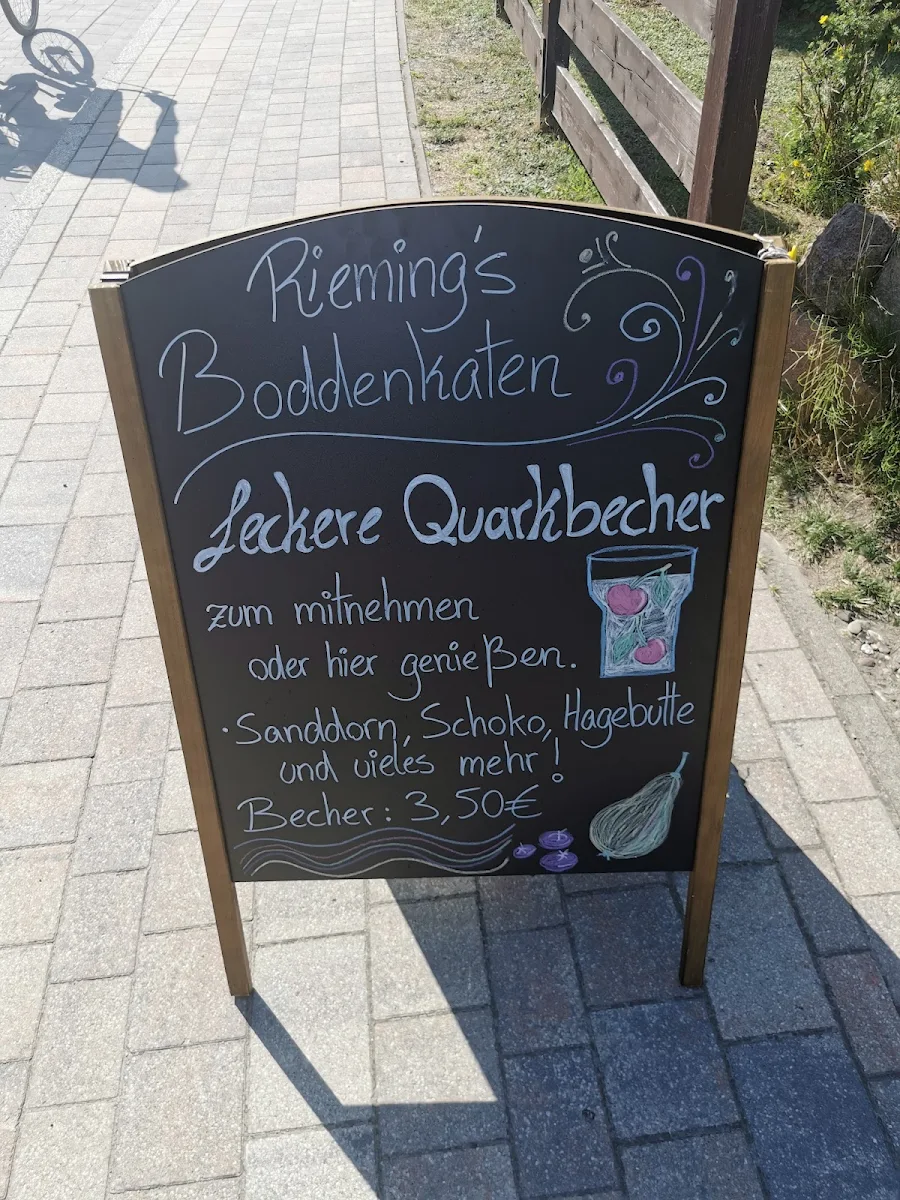 Rieming's
Boddenkaten
Leckere Quarkbecher
zum mitnehmen
oder hier genießen.
·Sanddorn, Schoko, Hagebutte
und vieles mehr!
Becher: 3,50€